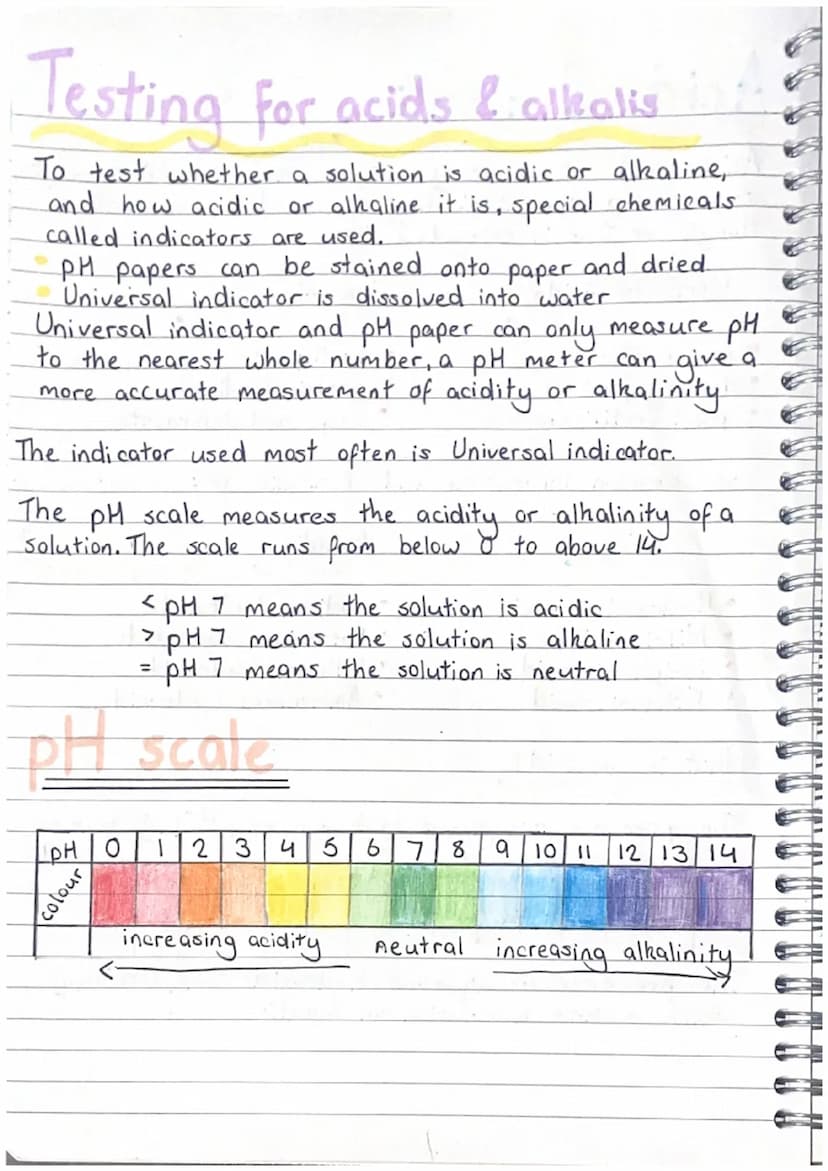 Testing for acids & alkalis
To test whether a solution is acidic or alkaline,
and how acidic or alkaline it is, special chemicals
called indicators are used.
• pH papers can be stained onto paper and dried
• Universal indicator is dissolved into water
Universal indicator and pH paper can only measure pH
to the nearest whole number, a pH meter can give a
more accurate measurement of acidity or alkalinity
The indicator used most often is Universal indicator.
The pH scale measures the acidity or alkalinity of a
solution. The scale runs from below 0 to above 14.
< pH 7 means the solution is acidic
> pH 7 means the solution is alkaline
= pH 7 means the solution is neutral
pH scale
pH 0 1 2 3 4 5 6 7 8 9 10 11 12 13 14
colour
increasing acidity neutral increasing alkalinity